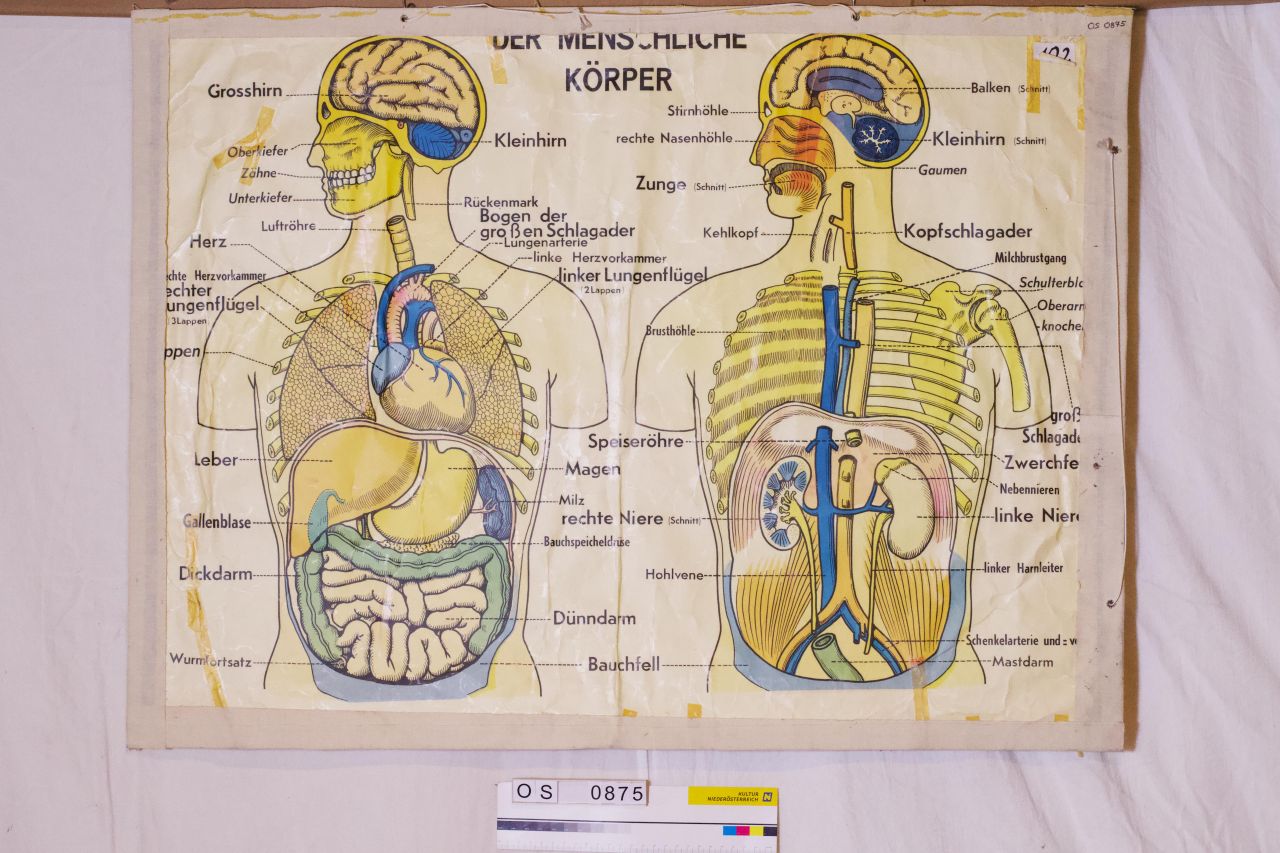 OS 0875
DER MENSCHLICHE
KÖRPER
Grosshirn
Kleinhirn
Oberkiefer
Zähne
Unterkiefer
Rückenmark
Luftröhre
Bogen der
großen Schlagader
Herz
Lungenarterie
linke Herzvorkammer
chte Herzvorkammer
linker Lungenflügel
(2Lappen)
echter
ungenflügel
(3Lappen)
ppen
Leber
Magen
Milz
Gallenblase
Bauchspeicheldrüse
Dickdarm
Dünndarm
Wurmfortsatz
Bauchfell
Balken (Schnitt)
Stirnhöhle
rechte Nasenhöhle
Kleinhirn (Schnitt)
Gaumen
Zunge (Schnitt)
Kehlkopf
Kopfschlagader
Milchbrustgang
Schulterbla
Oberarm
-knochen
Brusthöhle
groß
Schlagade
Speiseröhre
Zwerchfe
Nebennieren
rechte Niere (Schnitt)
linke Niere
Hohlvene
linker Harnleiter
Schenkelarterie und = ve
Mastdarm
OS 0875
KULTUR
NIEDERÖSTERREICH